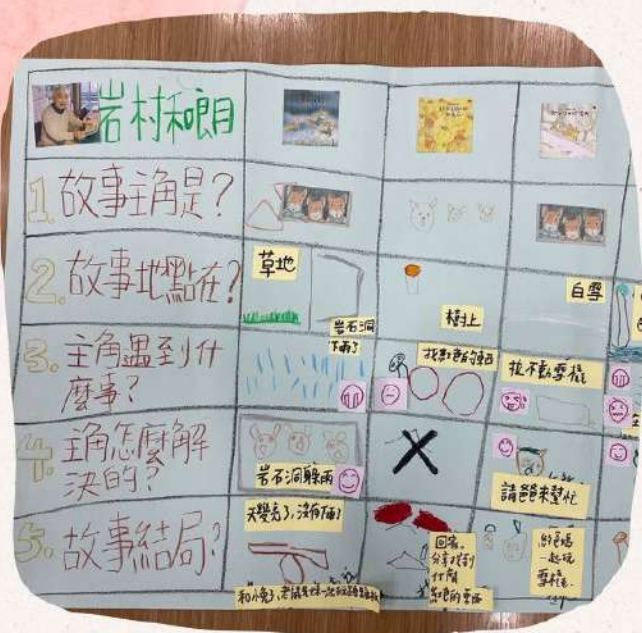 岩村和朗
1. 故事主角是?
2. 故事地點在?
草地
岩石洞
樹上
白雪
3. 主角遇到什
麼事?
下雨了
找紅色的東西
拉不動雪橇
4. 主角怎麼解
決的?
岩石洞躲雨
請爸爸來幫忙
5. 故事結局?
天變亮了,沒有下雨了
回家,
分享找到
什麼
紅色的東西
一起玩
雪橇